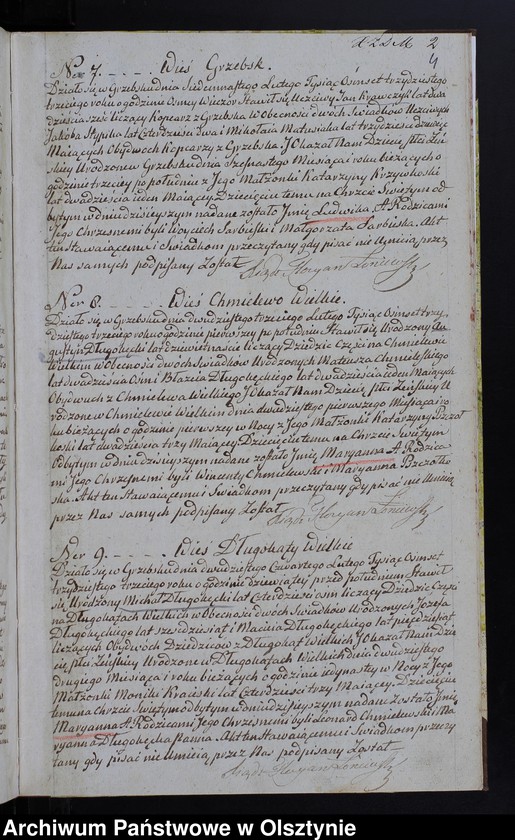 2
4
Ner 7. - - - - Wieś Grzebsk.
Działo się w Grzebsku dnia Siedemnastego Lutego Tysiąc Osmset trzydziestego
trzeciego roku o godzinie Osmey Wieczór Stawił się Uczciwy Jan Krawczyk lat dwa
dzieścia sześć liczący Kopcarz z Grzebska W obecności dwóch Swiadków Uczciwych
Jakóba Stupika lat czterdzieści dwa i Mikołaia Matusiaka lat trzydzieści dziewięć
Maiących Obydwóch Kopcarzy z Grzebska i Okazał Nam Dziecię płci Żeń
skiey Urodzone w Grzebsku dnia Szesnastego Miesiąca i roku bieżących o
godzinie trzeciey po południu z Jego Małżonki Katarzyny Krzywoski
lat dwadzieścia ieden Maiącey Dziecięciu temu na Chrzcie Swiętym od
bytym w dniu dzisieyszym nadane zostało Jmię Ludwika, A Rodzicami
Jego Chrzesnemi byli Woyciech Sarbieski i Małgorzata Sarbieska. Akt
ten Stawaiącemu i Swiadkom przeczytany gdy pisać nie Umieią, przez
Nas samych podpisany Został
Xiądz Floryan
Ner 8. - - - - - Wieś Chmielewo Wielkie.
Działo się w Grzebsku dnia dwudziestego trzeciego Lutego Tysiąc Osmset trzy
dziestego trzeciego roku o godzinie pierwszy po południu Stawił się Urodzony Au
gustyn Długokęcki lat dziewietnaście liczący Dziedzic Części na Chmielewie
Wielkim W obecności dwóch Swiadków Urodzonych Mateusza Chmielewskiego
lat dwadzieścia Osm i Błażeia Długokęckiego lat dwadzieścia ieden Maiących
Obydwóch z Chmielewa Wielkiego i Okazał Nam Dziecię płci Żeńskiey U
rodzone w Chmielewie Wielkim dnia dwudziestego pierwszego Miesiąca i ro
ku bieżących o godzinie pierwszey w Nocy z Jego Małżonki Katarzyny Pszczoł
koski lat dwadzieścia trzy Maiącey Dziecięciu temu na Chrzcie Swiętym
Odbytym w dniu dzisieyszym nadane zostało Jmię Maryanna A Rodzica
mi Jego Chrzesnemi byli Wincenty Chmielewski i Maryanna Pszczołko
ska. Akt ten Stawaiącemu i Swiadkom przeczytany gdy pisać nie Umieią
przez Nas samych podpisany Został
Xiądz Floryan
Ner 9. - - - - - Wieś Długokąty Wielkie
Działo się w Grzebsku dnia dwudziestego Czwartego Lutego Tysiąc Osmset
trzydziestego trzeciego roku o godzinie dziewiątey przed południem Stawił
się Urodzony Michał Długokęcki lat Czterdzieści osm liczący Dziedzic Części
na Długokątach Wielkich w Obecności dwóch Swiadków Urodzonych Józefa
Długokęckiego lat sześćdziesiąt i Macieia Długokęckiego lat pięćdziesiąt
liczących Obydwóch Dziedziców z Długokąt Wielkich i Okazał Nam Dzie
cię płci Żeńskiey Urodzone w Długokątach Wielkich dnia dwudziestego
drugiego Miesiąca i roku bieżących o godzinie iedynastey w Nocy z Jego
Małżonki Moniki lat Czterdzieści trzy Maiącey. Dziecięciu
temu na chrzcie Swiętym odbytym w dniu dzisieyszym nadane Zostało Jmię
Maryanna A Rodzicami Jego Chrzesnemi byli Leonard Chmielewski i Ma
ryanna Długokęcka Panna. Akt ten Stawaiącemu i Swiadkom przeczy
tany gdy pisać nie Umieią przez Nas podpisany Został
Xiądz Floryan
Archiwum Państwowe w Olsztynie